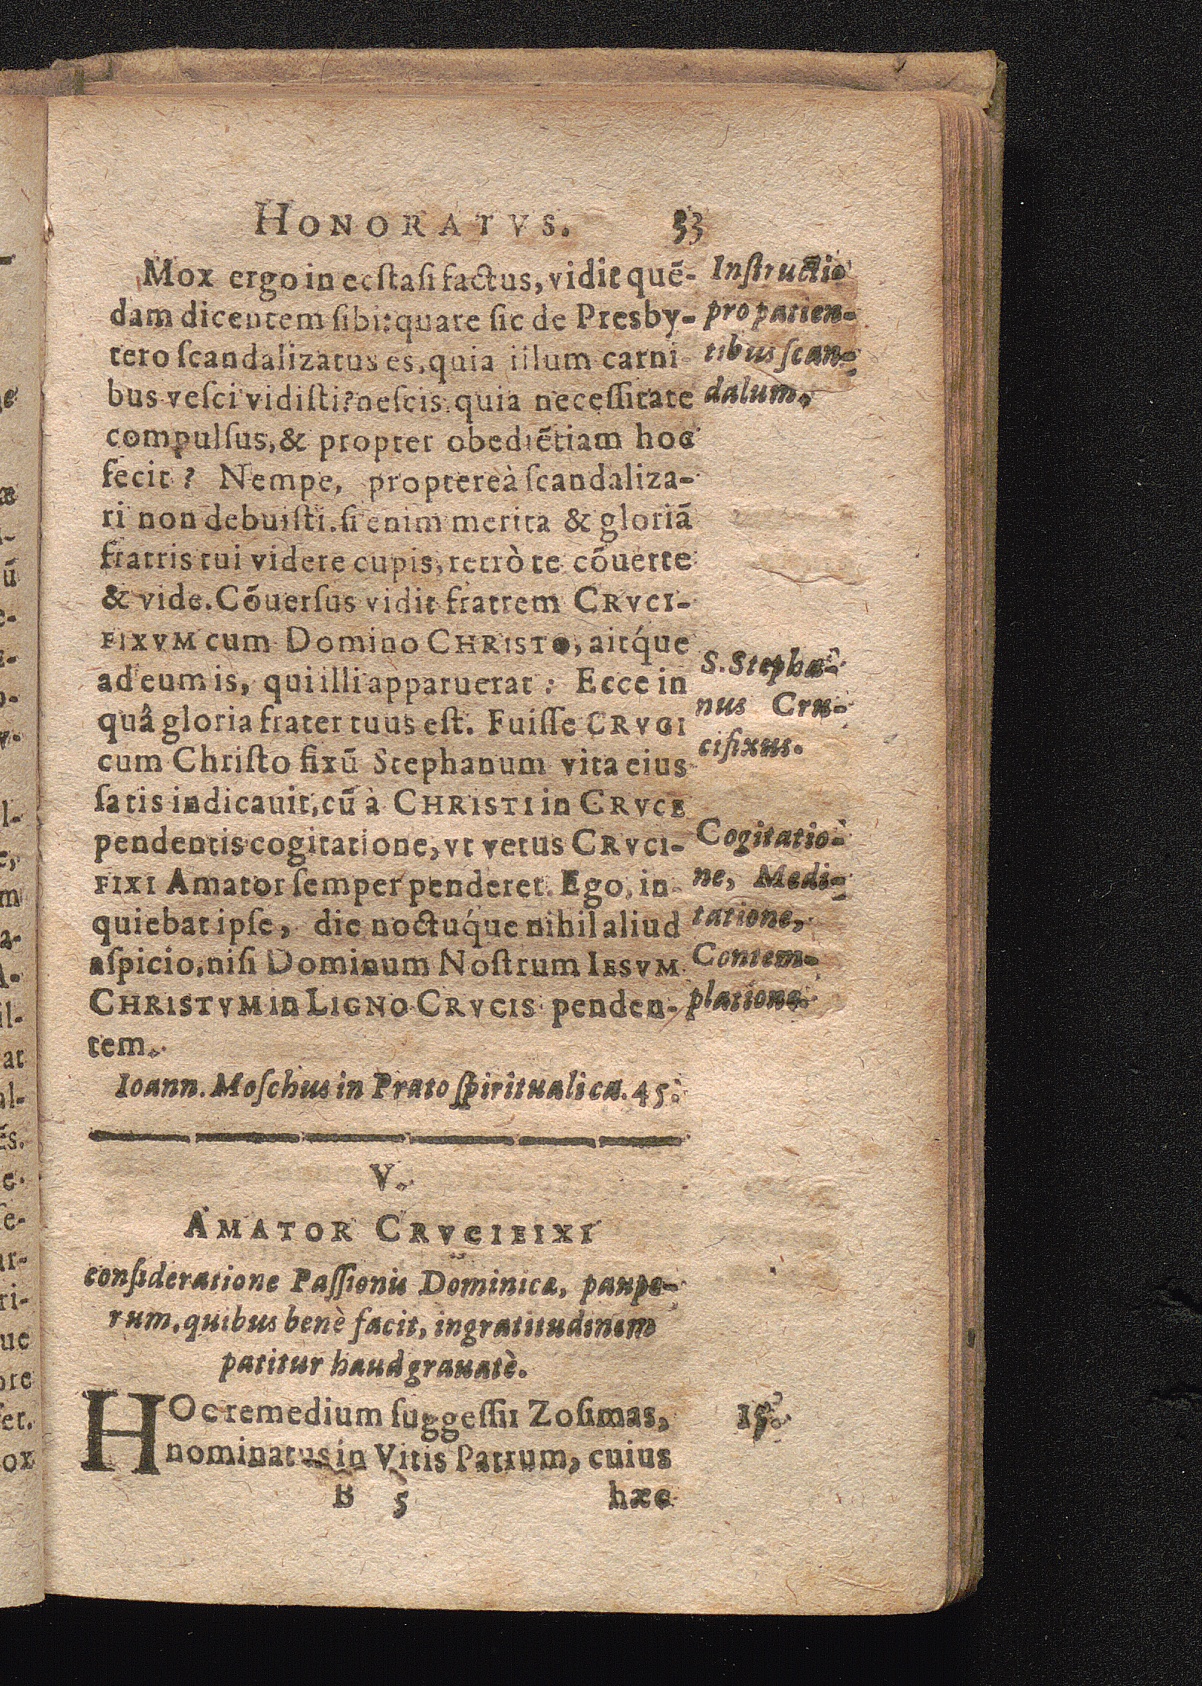 HONORATVS. 33
Mox ergo in ecstasi factus, vidit quē-
dam dicentem sibi: quare sic de Presby-
tero scandalizatus es, quia illum carni
bus vesci vidisti? nescis quia necessitate
compulsus, & propter obediētiam hoc
fecit? Nempe, proptereà scandaliza-
ri non debuisti. si enim merita & gloriā
fratris tui videre cupis, retrò te cōuerte
& vide. Cōuersus vidit fratrem CRVCI-
FIXVM cum Domino CHRISTO, aitq́ue
ad eum is, qui illi apparuerat: Ecce in
quâ gloria frater tuus est. Fuisse CRVCI
cum Christo fixū Stephanum vita eius
satis indicauit, cū à CHRISTI in CRVCE
pendentis cogitatione, vt vetus CRVCI-
FIXI Amator semper penderet. Ego, in-
quiebat ipse, die noctuq́ue nihil aliud
aspicio, nisi Dominum Nostrum IESVM
CHRISTVM in LIGNO CRVCIS penden-
tem.
Ioann. Moschus in Prato spirituali ca. 45.
Instructio
pro patien-
tibus scan-
dalum.
S. Stepha-
nus Cru-
cifixus.
Cogitatio-
ne, Medi-
tatione,
Contem-
platione.
V.
AMATOR CRVCIFIXI
consideratione Passionis Dominicæ, paupe-
rum, quibus benè facit, ingratitudinem
patitur haud grauatè.
HOc remedium suggessit Zosimas,
nominatus in Vitis Patrum, cuius
15.
B 5 hæc